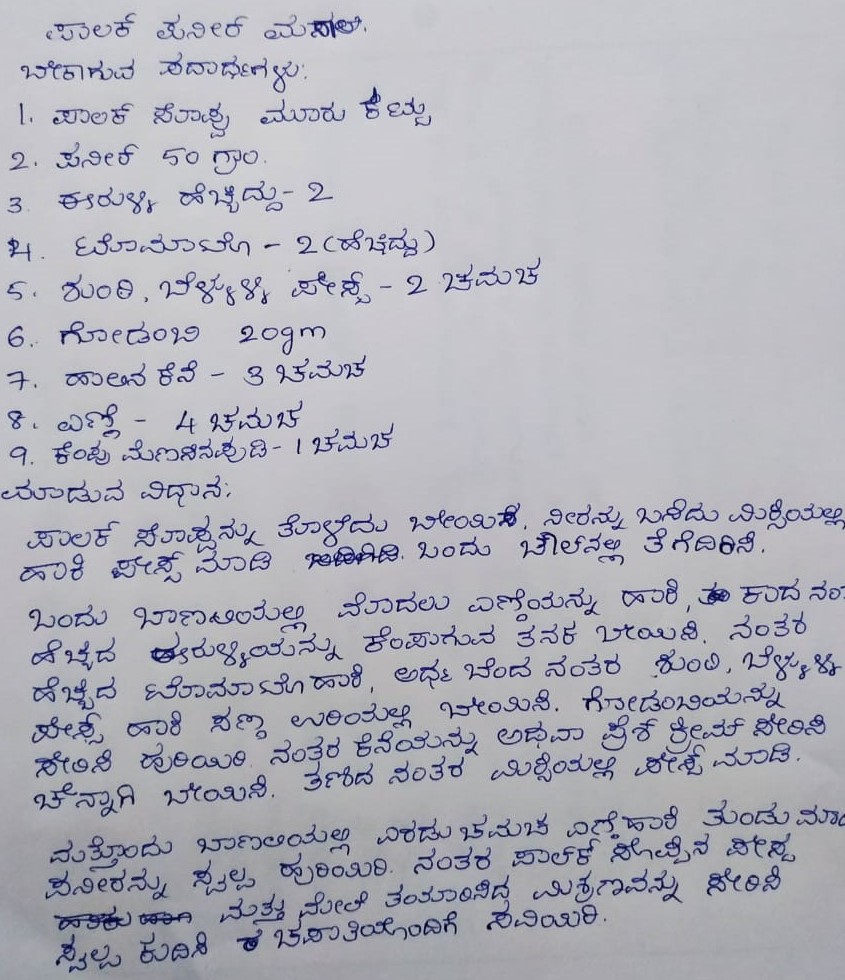 ಪಾಲಕ್ ಪನೀರ್ ಮಸಾಲ.
ಬೇಕಾಗುವ ಪದಾರ್ಥಗಳು:
1. ಪಾಲಕ್ ಸೊಪ್ಪು ಮೂರು ಕಟ್ಟು
2. ಪನೀರ್ 50 ಗ್ರಾಂ.
3. ಈರುಳ್ಳಿ ಹೆಚ್ಚಿದ್ದು - 2
4. ಟೊಮಾಟೊ - 2 (ಹೆಚ್ಚಿದ್ದು)
5. ಶುಂಠಿ, ಬೆಳ್ಳುಳ್ಳಿ ಪೇಸ್ಟ್ - 2 ಚಮಚ
6. ಗೋಡಂಬಿ 20gm
7. ಹಾಲಿನ ಕೆನೆ - 3 ಚಮಚ
8. ಎಣ್ಣೆ - 4 ಚಮಚ
9. ಕೆಂಪು ಮೆಣಸಿನಪುಡಿ - 1 ಚಮಚ
ಮಾಡುವ ವಿಧಾನ:
ಪಾಲಕ್ ಸೊಪ್ಪನ್ನು ತೊಳೆದು ಬೇಯಿಸಿ. ನೀರನ್ನು ಬಸಿದು ಮಿಕ್ಸಿಯಲ್ಲಿ
ಹಾಕಿ ಪೇಸ್ಟ್ ಮಾಡಿ ಒಂದು ಬೌಲ್‌ನಲ್ಲಿ ತೆಗೆದಿರಿಸಿ.
ಒಂದು ಬಾಣಲಿಯಲ್ಲಿ ಮೊದಲು ಎಣ್ಣೆಯನ್ನು ಹಾಕಿ, ಕಾದ ನಂ
ಹೆಚ್ಚಿದ ಈರುಳ್ಳಿಯನ್ನು ಕೆಂಪಾಗುವ ತನಕ ಬೇಯಿಸಿ. ನಂತರ
ಹೆಚ್ಚಿದ ಟೊಮಾಟೊ ಹಾಕಿ, ಅರ್ಧ ಬೆಂದ ನಂತರ ಶುಂಠಿ, ಬೆಳ್ಳುಳ್ಳಿ
ಪೇಸ್ಟ್ ಹಾಕಿ ಸಣ್ಣ ಉರಿಯಲ್ಲಿ ಬೇಯಿಸಿ. ಗೋಡಂಬಿಯನ್ನು
ಸೇರಿಸಿ ಹುರಿಯಿರಿ. ನಂತರ ಕೆನೆಯನ್ನು ಅಥವಾ ಫ್ರೆಶ್ ಕ್ರೀಮ್ ಸೇರಿಸಿ
ಚೆನ್ನಾಗಿ ಬೇಯಿಸಿ. ತಣಿದ ನಂತರ ಮಿಕ್ಸಿಯಲ್ಲಿ ಪೇಸ್ಟ್ ಮಾಡಿ.
ಮತ್ತೊಂದು ಬಾಣಲಿಯಲ್ಲಿ ಎರಡು ಚಮಚ ಎಣ್ಣೆ ಹಾಕಿ ತುಂಡು ಮಾ
ಪನೀರನ್ನು ಸ್ವಲ್ಪ ಹುರಿಯಿರಿ. ನಂತರ ಪಾಲಕ್ ಸೊಪ್ಪಿನ ಪೇಸ್ಟ
ಮತ್ತು ಮೇಲೆ ತಯಾರಿಸಿದ್ದ ಮಿಶ್ರಣವನ್ನು ಸೇರಿಸಿ
ಸ್ವಲ್ಪ ಕುದಿಸಿ ಚಪಾತಿಯೊಂದಿಗೆ ಸವಿಯಿರಿ.